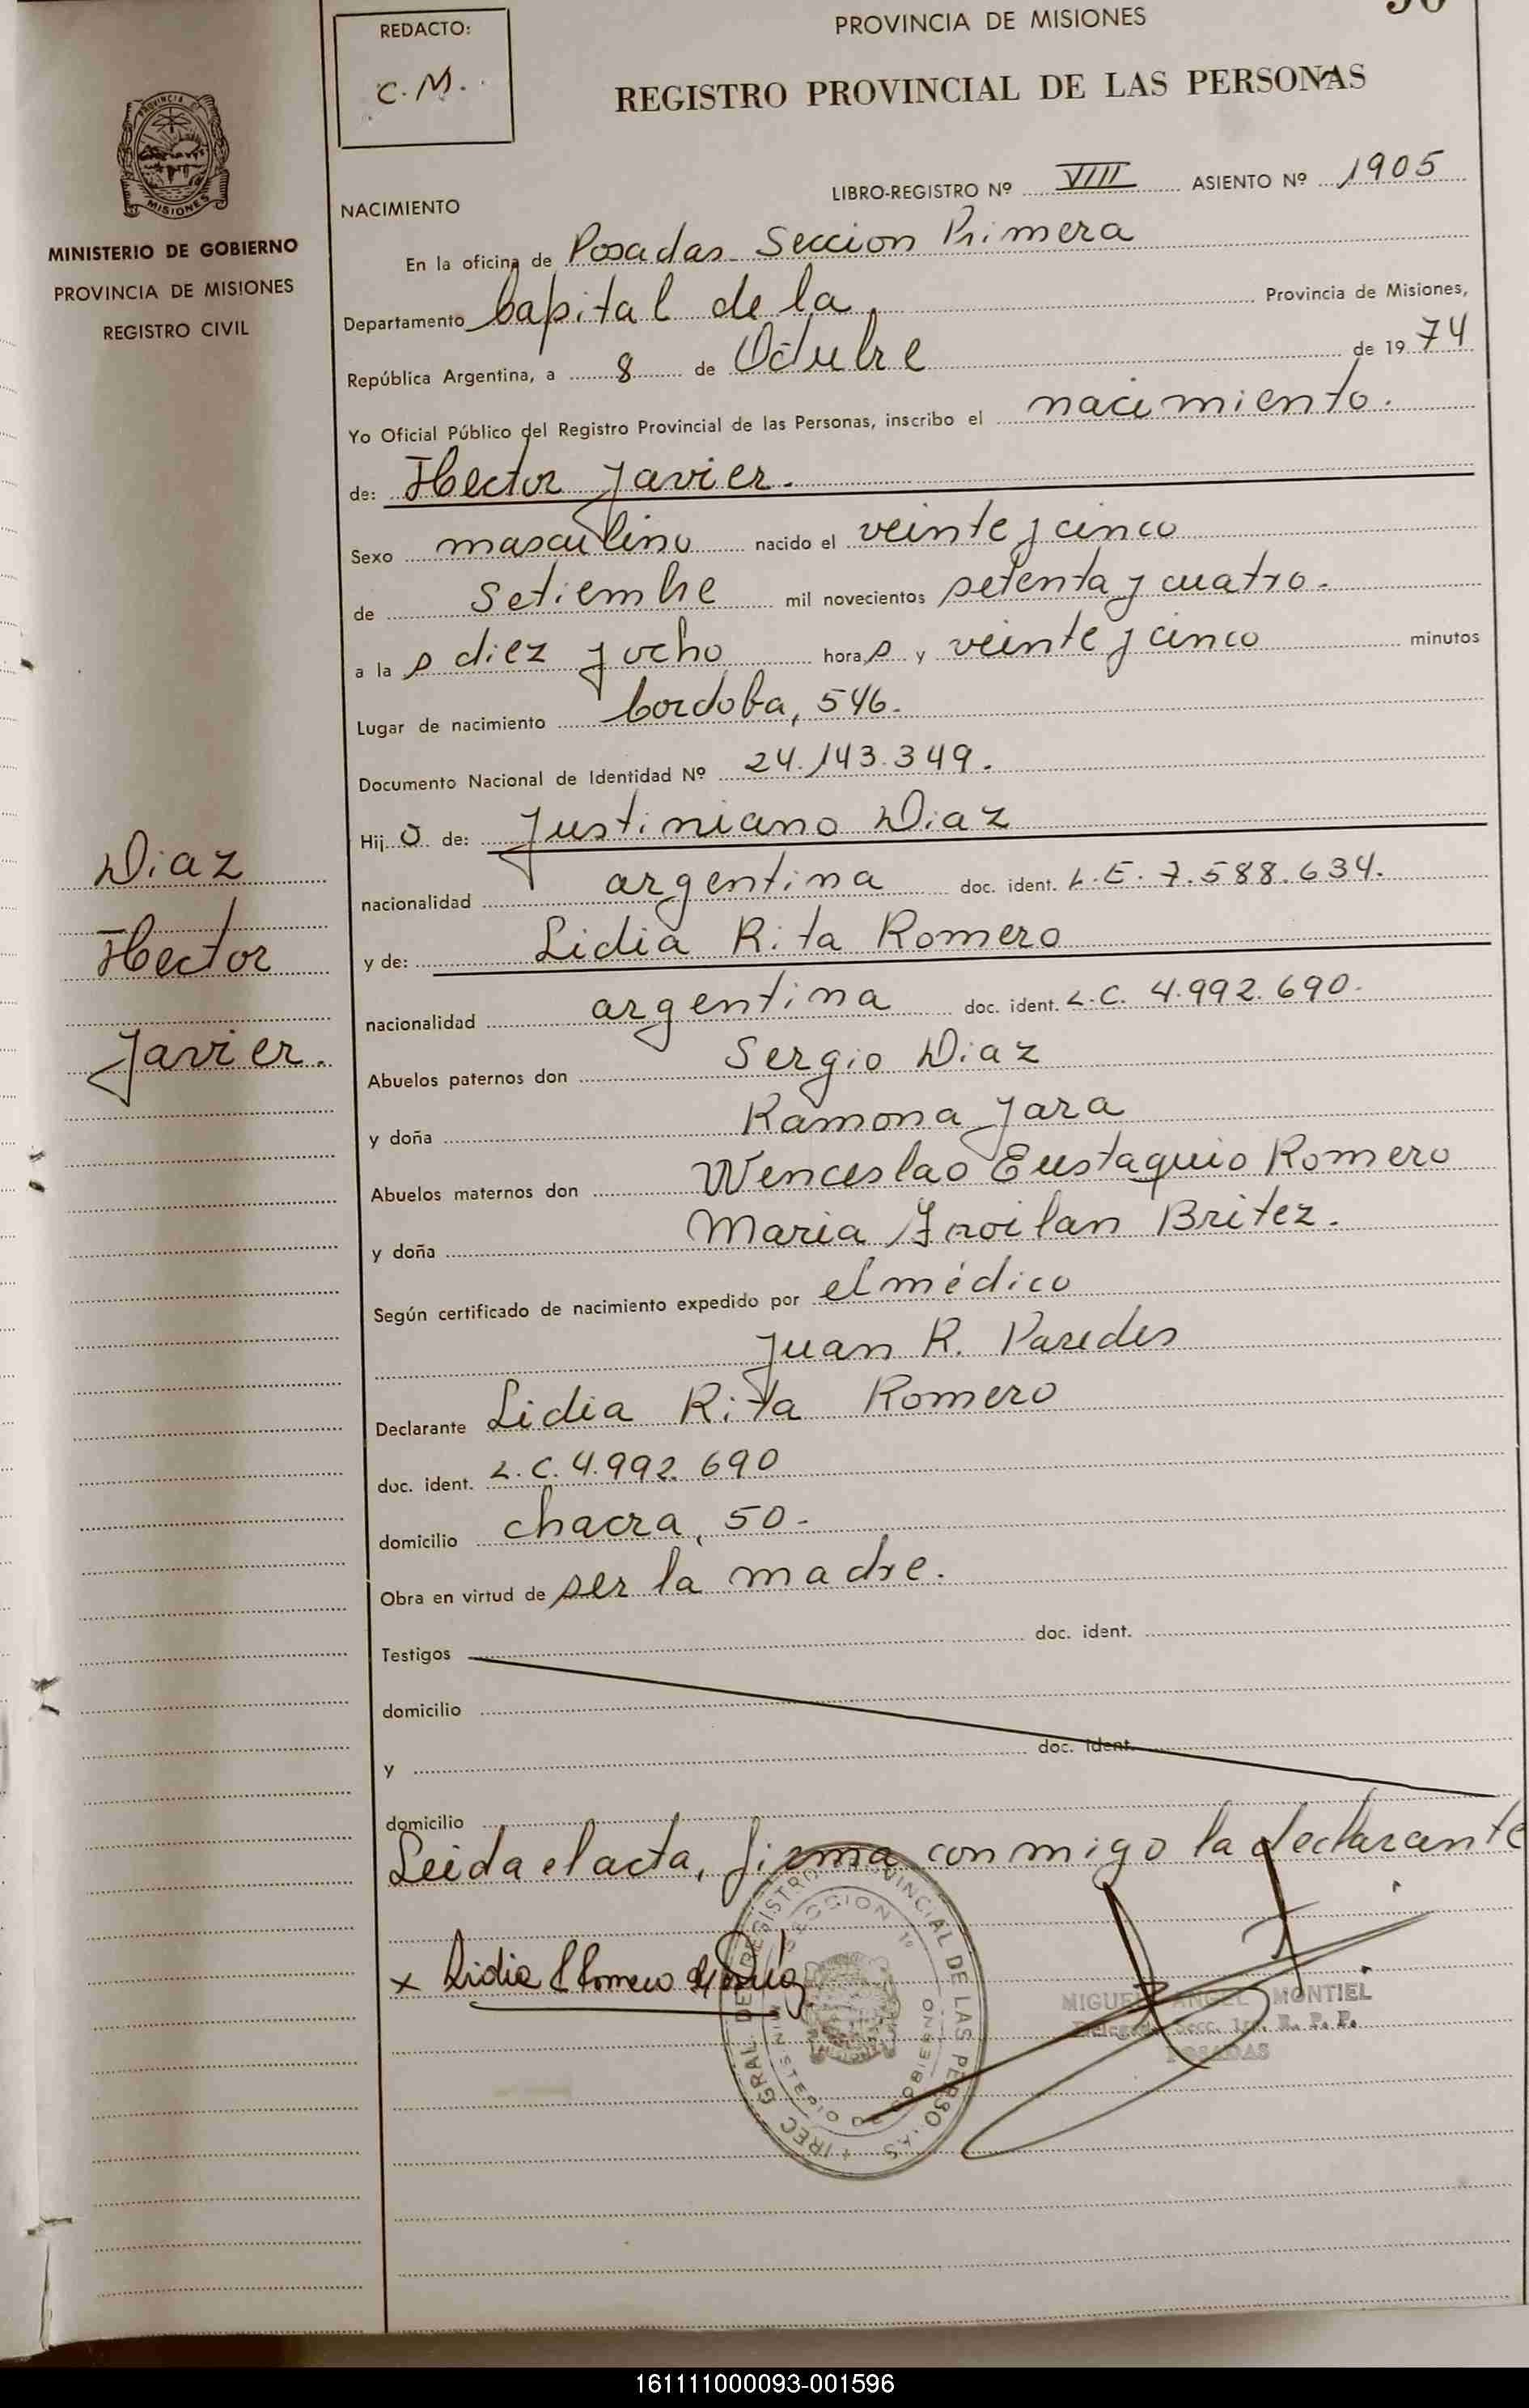 REDACTO:
C. M.
PROVINCIA DE MISIONES
REGISTRO PROVINCIAL DE LAS PERSONAS
MISIONES
MINISTERIO DE GOBIERNO
PROVINCIA DE MISIONES
REGISTRO CIVIL
NACIMIENTO
LIBRO-REGISTRO Nº VIII ASIENTO Nº 1905
En la oficina de Posadas Seccion Primera
Departamento Capital de la Provincia de Misiones,
República Argentina, a 8 de Octubre de 1974
Yo Oficial Público del Registro Provincial de las Personas, inscribo el nacimiento.
de: Hector Javier.
Sexo masculino nacido el veinte y cinco
de Setiembre mil novecientos setenta y cuatro.
a las diez y ocho horas y veinte y cinco minutos
Lugar de nacimiento Cordoba, 546.
Documento Nacional de Identidad Nº 24.143.349.
Hijo de: Justiniano Diaz
nacionalidad argentina doc. ident. L.E. 7.588.634.
y de: Lidia Rita Romero
nacionalidad argentina doc. ident. L.C. 4.992.690.
Abuelos paternos don Sergio Diaz
y doña Ramona Jara
Abuelos maternos don Wenceslao Eustaquio Romero
y doña Maria Froilan Britez.
Según certificado de nacimiento expedido por el médico
Juan R. Paredes
Declarante Lidia Rita Romero
doc. ident. L.C. 4.992.690
domicilio chacra, 50.
Obra en virtud de ser la madre.
Testigos doc. ident.
domicilio
y doc. ident.
domicilio
Leida el acta, firma conmigo la declarante
Diaz
Hector
Javier.
x Lidia R Romero de Diaz
MIGUEL ANGEL MONTIEL
Delegado Secc. 1ra. R. P. P.
POSADAS
161111000093-001596